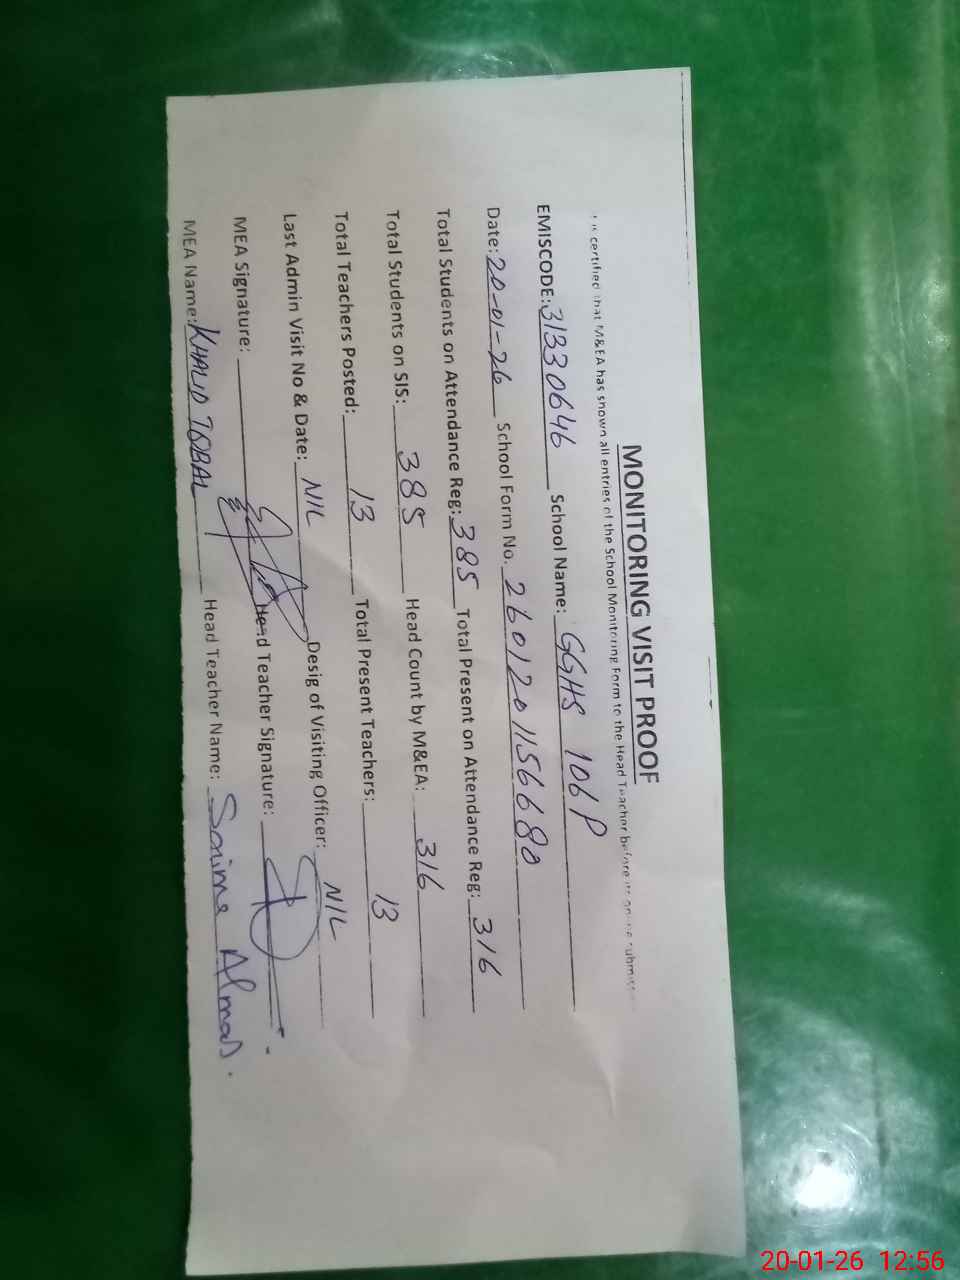 MONITORING VISIT PROOF
It is certified that M&EA has shown all entries of the School Monitoring Form to the Head Teacher before its online submiss
EMISCODE: 31330646 School Name: GGHS 106 P
Date: 20-01-26 School Form No. 2601201156680
Total Students on Attendance Reg: 385 Total Present on Attendance Reg: 316
Total Students on SIS: 385 Head Count by M&EA: 316
Total Teachers Posted: 13 Total Present Teachers: 13
Last Admin Visit No & Date: NIL Desig of Visiting Officer: NIL
MEA Signature: Head Teacher Signature:
MEA Name: KHALID IQBAL Head Teacher Name: Almas.
20-01-26 12:56